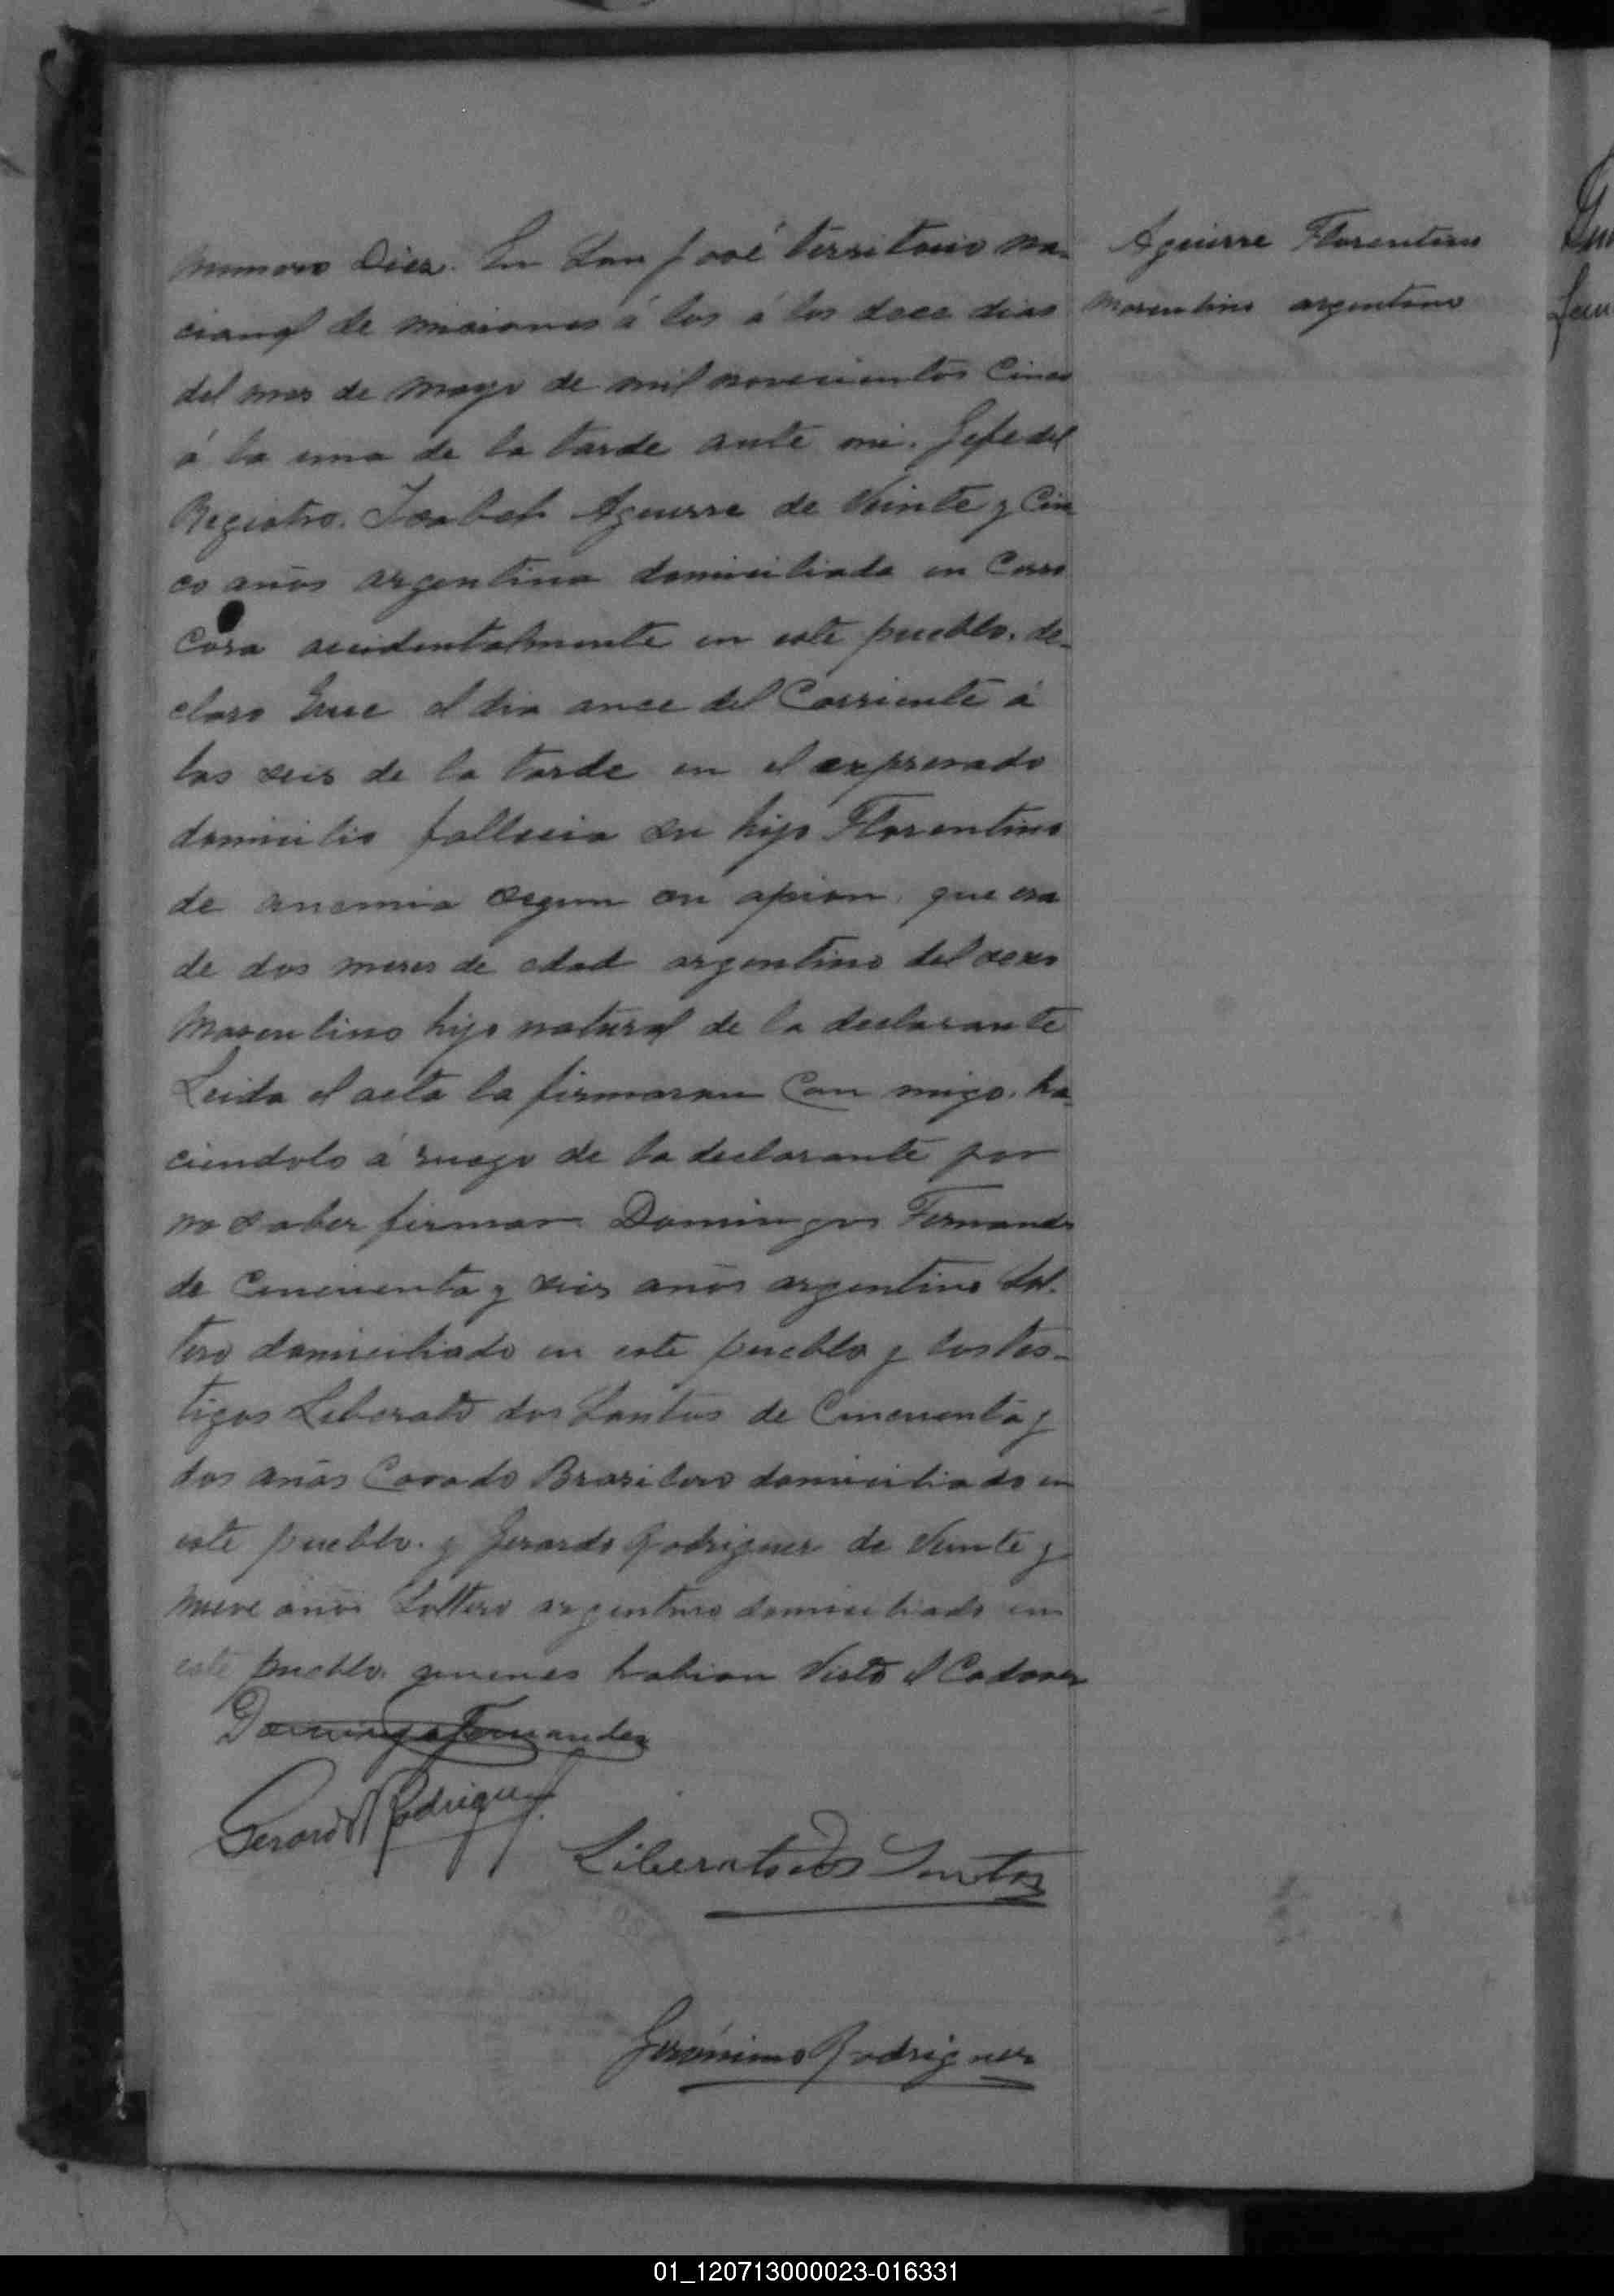 Numero Diez. En San José territorio na-
cional de misiones á los á los doce dias
del mes de mayo de mil novecientos Cinco
á la una de la tarde ante mi. Jefe del
Registro. Isabel Aguirre de Veinte y Cin
co años argentina domiciliada en Cerro
Cora accidentalmente en este pueblo. de-
claro Que el dia once del Corriente á
las seis de la tarde en el expresado
domicilio fallecia su hijo Florentino
de anemia segun su opion, que era
de dos meses de edad argentino del sexo
Masculino hijo natural de la declarante
Leida el acta la firmaron Con migo. ha-
ciendolo á ruego de la declarante por
no saber firmar Domingos Fernandz
de Cincuenta y seis años argentino Sol-
tero domiciliado en este pueblo y los tes-
tigos Liberato dos Santos de Cincuenta y
dos años Casado Brasilero domiciliado en
este pueblo. y Gerardo Rodriguez de Veinte y
nueve años Soltero argentino domiciliado en
este pueblo. quienes habian Visto el Cadaver
Domingo Fernandez
Gerardo Rodriguez
Liberato dos Santos
Gerónimo Rodriguez
Aguirre Florentino
Masculino argentino
01_120713000023-016331